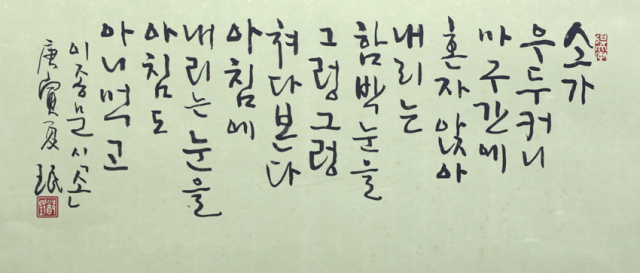 소가
우두커니
마구간에
혼자 앉아
내리는
함박눈을
그렁그렁
쳐다본다
아침에
내리는 눈을
아침도
아니먹고
이종문 시 「소」
庚寅夏 珉